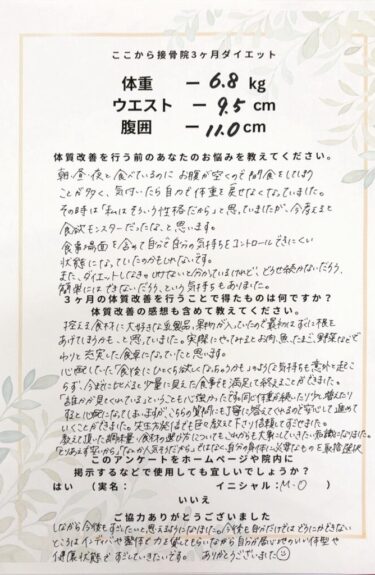 ここから接骨院3ヶ月ダイエット
体重 ー6.8 kg
ウエスト ー9.5 cm
腹囲 ー11.0 cm
体質改善を行う前のあなたのお悩みを教えてください。
朝・昼・夜と食べているのにお腹が空くので間食をしてしまう
ことが多く、気付いたら自力で体重を戻せなくなっていました。
その時は「私はそういう性格だから」と思っていましたが、今考えると
食欲モンスターだったな、と思います。
食事場面を含めて自分で自分の気持ちをコントロールできにくい
状態になっていたのかもしれないです。
また、ダイエットしなきゃいけないと分かっているけれど、どうせ続かないだろう、
簡単にはできないだろう、という気持ちもありました。
3ヶ月の体質改善を行うことで得たものは何ですか？
体質改善の感想も含めて教えてください。
控える食材に大好きな豆製品、果物が入っていたので最初はすぐに根を
あげてしまうかも…と思っていました。実際にやってみるとお肉、魚、たまご、野菜などで
わりと充実した食卓になっていたと思います。
心配していた「食後にひもじく欲しくなるかも」のような気持ちも意外と起こ
らず、今までにひと少量に見えた食事でも満足して終えることができました。
「誰かが見てくれている」ということも心強かったです。同じ体重が続いたり少し増えたり
すると心配になってしまいますが、こちらの質問にも丁寧に答えてくれるので安心して進めて
いくことができました。先生方はとても日々教えて下さり信頼してすごせました。
教えて頂いた調味量・食材の選び方についてもこれからも大事にしていきたい知識になりました。
「とりあえず安いから」「なんか人気そうだから」ではなく、自分の身体に必要なものを取捨選択
このアンケートをホームページや院内に
掲示するなどで使用しても宜しいでしょうか？
はい （実名： イニシャル：M・O ）
いいえ
ご協力ありがとうございました
しながら今後もすごしたいと思えるようになりました。今後も自分だけではどうにかできない
ところはインディバや整体で力を貸してもらいながら自分が居心地のいい体型や
健康状態ですごしていきたいです。 ありがとうございました